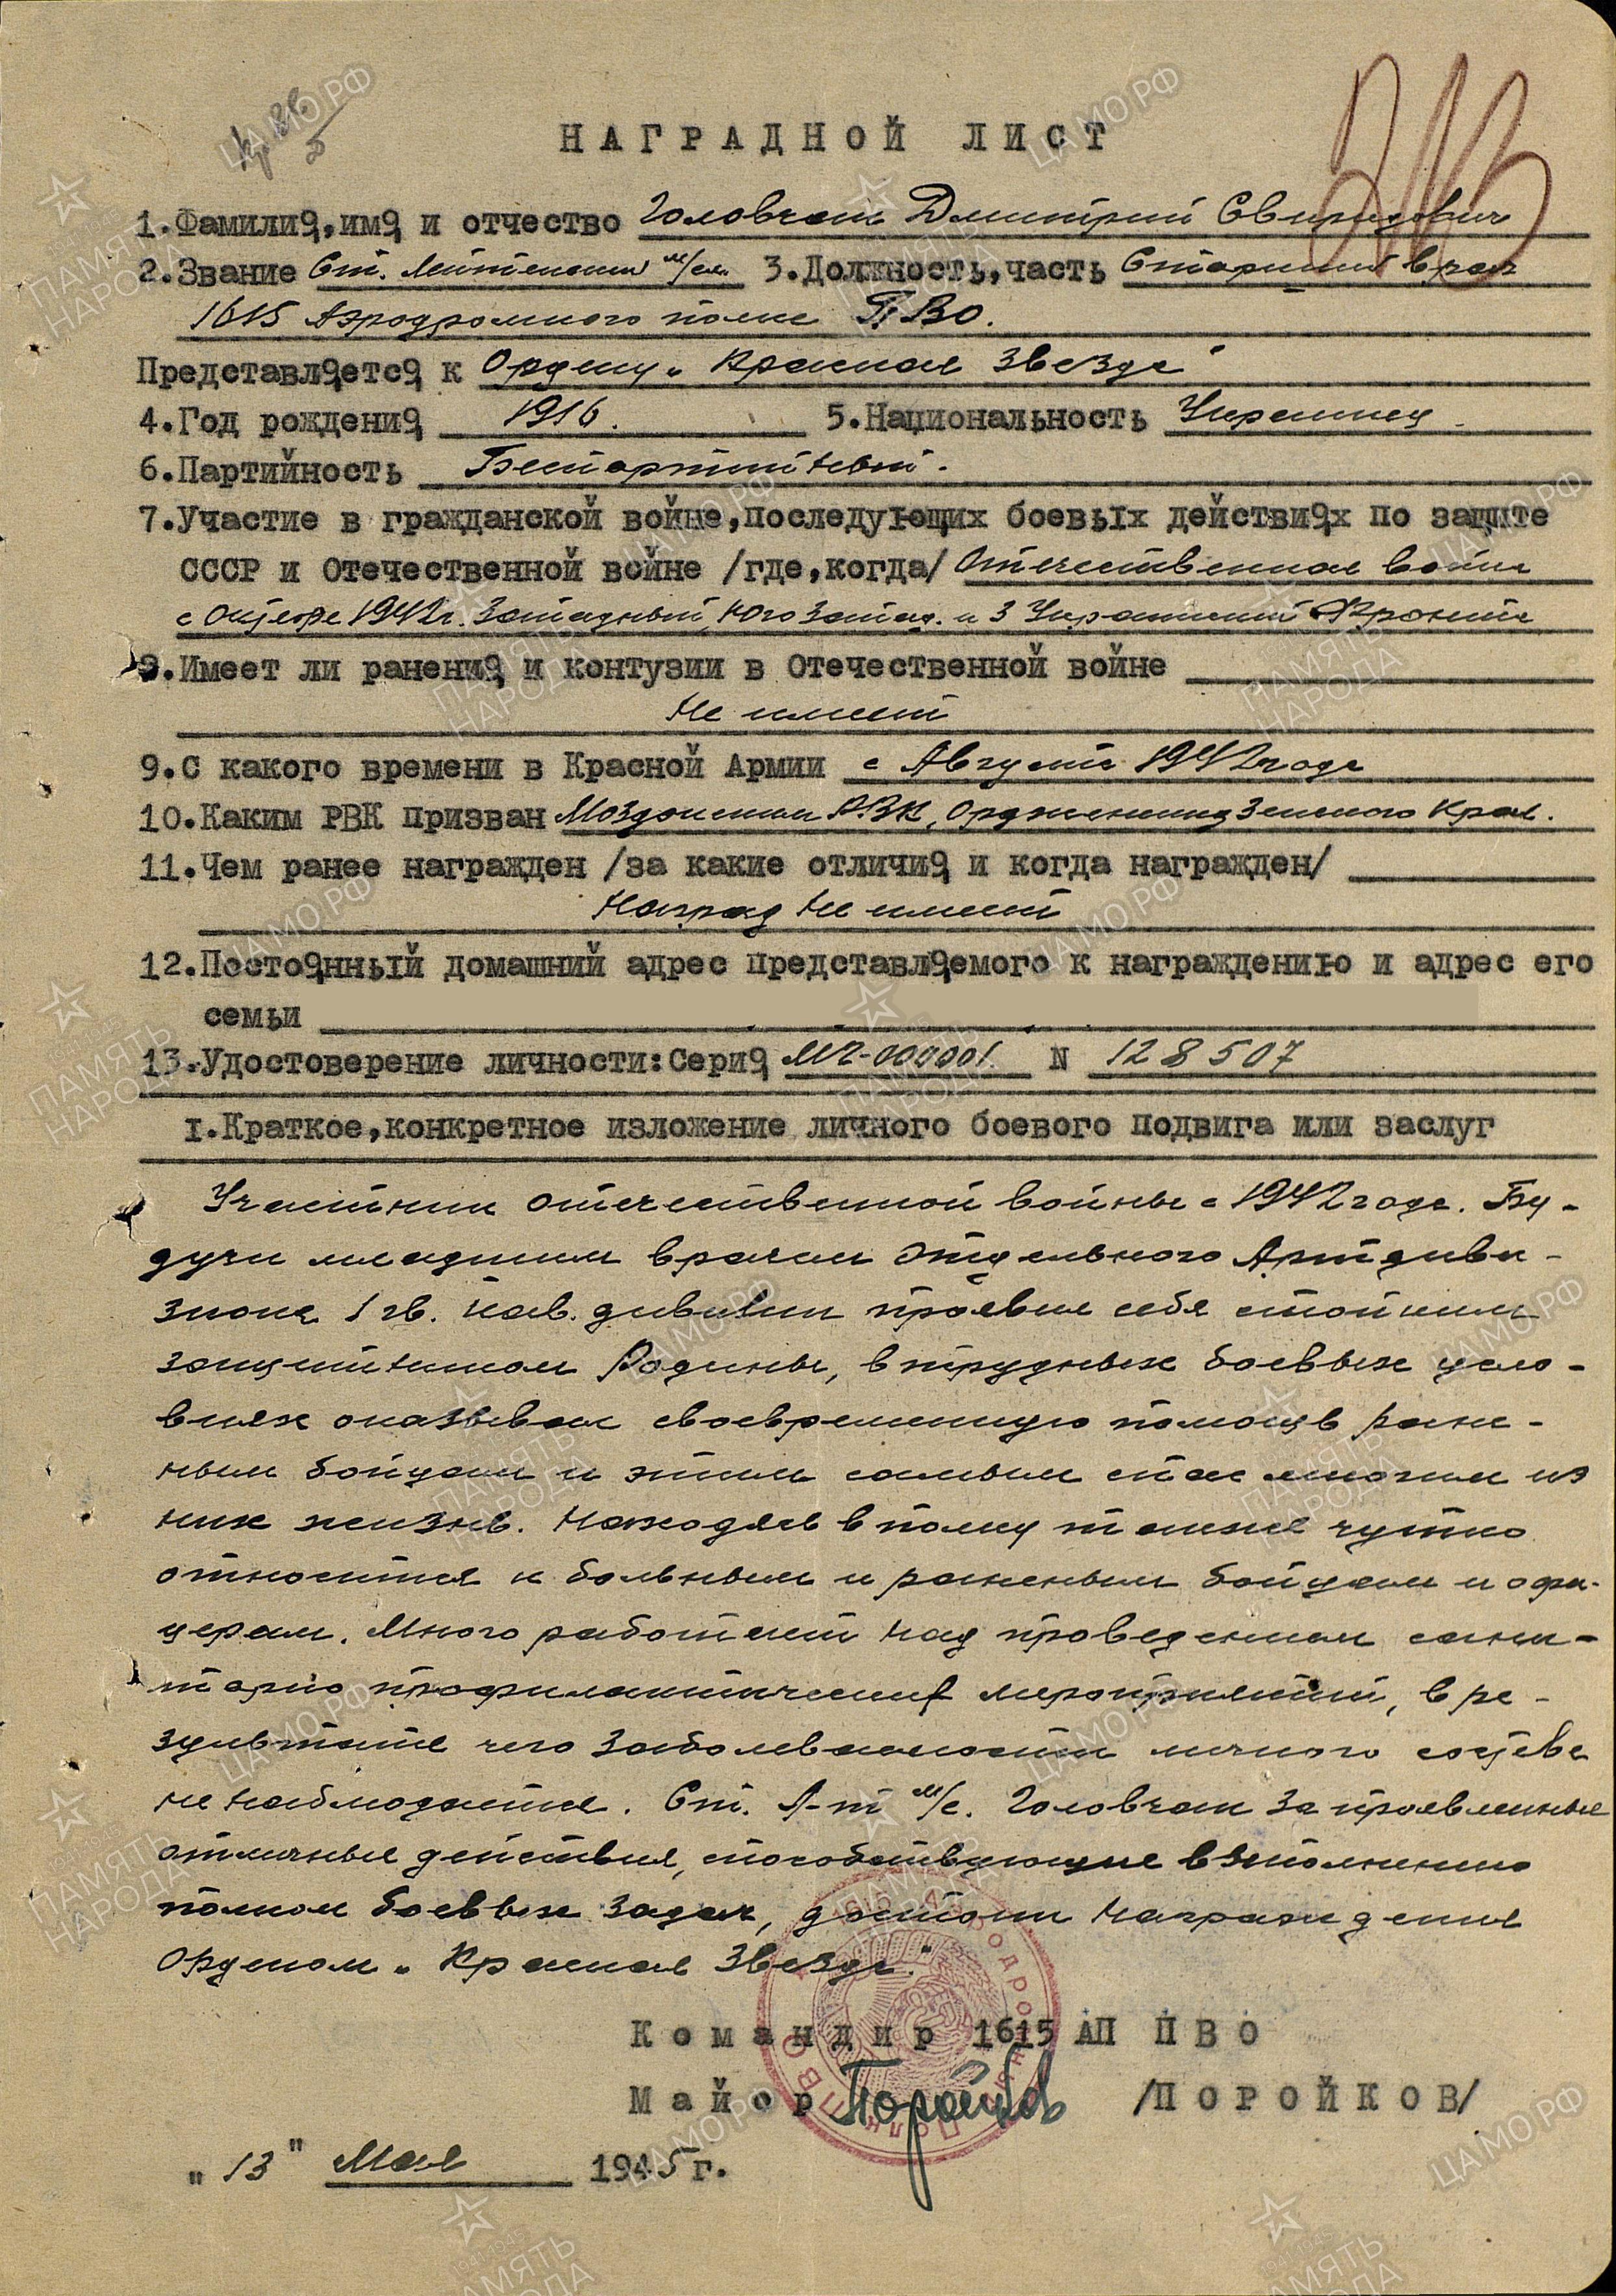 НАГРАДНОЙ ЛИСТ
1.Фамилия,имя и отчество Головчан Дмитрий Свиридович
2.Звание Ст. Лейтенант м/сл. 3.Должность,часть Старший врач
1615 Аэродромного полка ПВО.
Представляется к Ордену „Красная Звезда"
4.Год рождения 1916. 5.Национальность Украинец
6.Партийность Беспартийный.
7.Участие в гражданской войне,последующих боевых действиях по защите
СССР и Отечественной войне /где,когда/ Отечественная война
с 1942г. Западный, Юго Запад. и 3 Украинский Фронт
8.Имеет ли ранения и контузии в Отечественной войне
Не имеет
9.С какого времени в Красной Армии с Августа 1942 года
10.Каким РВК призван Моздокским РВК, Орджоникидзевского края.
11.Чем ранее награжден /за какие отличия и когда награжден/
Наград не имеет
12.Постоянный домашний адрес представляемого к награждению и адрес его
семьи
13.Удостоверение личности:Серия МЧ-000001. N 128507
I.Краткое,конкретное изложение личного боевого подвига или заслуг
Участник отечественной войны с 1942 года. Бу-
дучи младшим врачом отдельного Артдиви-
зиона 1 гв. кав. дивизии проявил себя стойким
защитником Родины, в трудных боевых усло-
виях оказывал своевременную помощь ране-
ным бойцам и этим самым спас многим из
них жизнь. Находясь в полку также чутко
относится к больным и раненым бойцам и офи-
церам. Много работает над проведением сани-
тарно профилактических мероприятий, в ре-
зультате чего заболеваемости личного состава
не наблюдается. Ст. л-т м/с. Головчан за проявленные
отличные действия, способствующие выполнению
полком боевых задач, достоин награждения
Орденом „Красная Звезда."
Командир 1615 АП ПВО
Майор Поройков /ПОРОЙКОВ/
"13" Мая 1945 г.